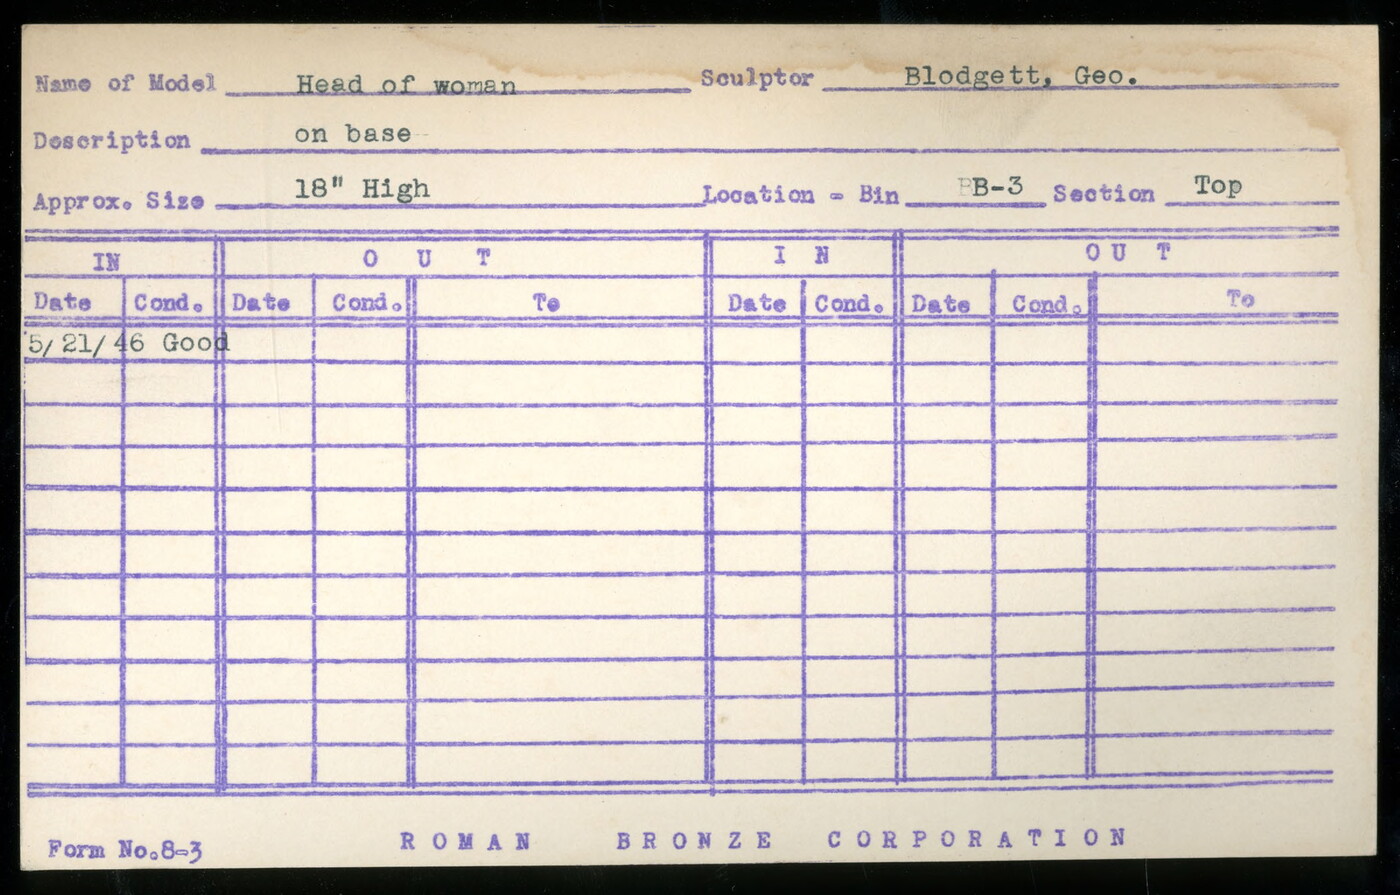 Name of Model Head of woman Sculptor Blodgett, Geo.
Description on base
Approx. Size 18" High Location - Bin B-3 Section Top
IN OUT IN OUT
Date Cond. Date Cond. To Date Cond. Date Cond. To
5/21/46 Good
Form No.8-3 ROMAN BRONZE CORPORATION